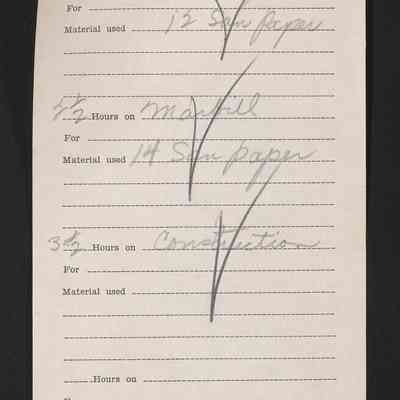 For
Material used 12 San paper
2 1/2 Hours on
For
Material used 14 San paper
3 1/2 Hours on Construction
For
Material used
Hours on